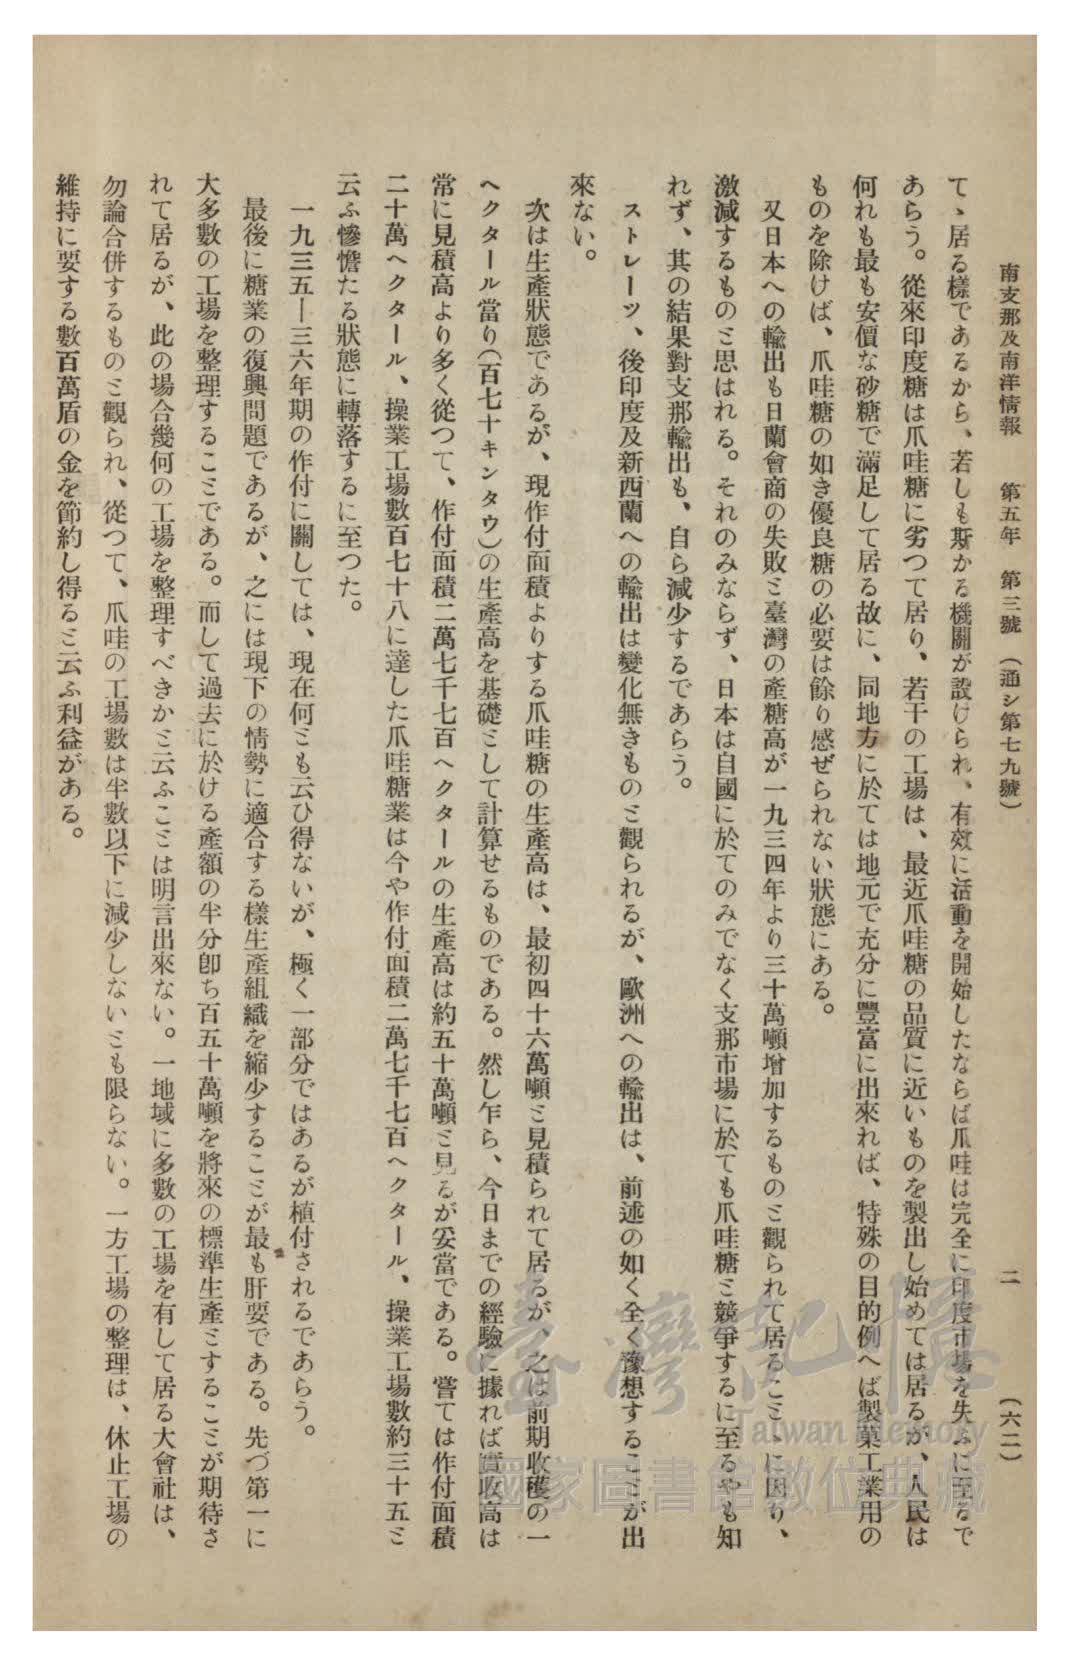 南支那及南洋情報　第五年　第三號　（通シ第七九號）　二　（六二）
てゝ居る樣であるから、若しも斯かる機關が設けられ、有效に活動を開始したならば爪哇は完全に印度市場を失ふに至るで
あらう。從來印度糖は爪哇糖に劣つて居り、若干の工場は、最近爪哇糖の品質に近いものを製出し始めては居るが、人民は
何れも最も安價な砂糖で滿足して居る故に、同地方に於ては地元で充分に豐富に出來れば、特殊の目的例へば製菓工業用の
ものを除けば、爪哇糖の如き優良糖の必要は餘り感ぜられない狀態にある。
又日本への輸出も日蘭會商の失敗と臺灣の產糖高が一九三四年より三十萬噸增加するものと觀られて居ることゝに因り、
激減するものと思はれる。それのみならず、日本は自國に於てのみでなく支那市場に於ても爪哇糖と競爭するに至るやも知
れず、其の結果對支那輸出も、自ら減少するであらう。
ストレーツ、後印度及新西蘭への輸出は變化無きものと觀られるが、歐洲への輸出は、前述の如く全く豫想することが出
來ない。
次は生產狀態であるが、現作付面積よりする爪哇糖の生產高は、最初四十六萬噸と見積られて居るが、之は前期收穫の一
ヘクタール當り（百七十キンタウ）の生產高を基礎として計算せるものである。然し乍ら、今日までの經驗に據れば實收高は
常に見積高より多く從つて、作付面積二萬七千七百ヘクタールの生產高は約五十萬噸と見るが妥當である。嘗ては作付面積
二十萬ヘクタール、操業工場數百七十八に達した爪哇糖業は今や作付面積二萬七千七百ヘクタール、操業工場數約三十五と
云ふ慘憺たる狀態に轉落するに至つた。
一九三五―三六年期の作付に關しては、現在何とも云ひ得ないが、極く一部分ではあるが植付されるであらう。
最後に糖業の復興問題であるが、之には現下の情勢に適合する樣生產組織を縮少することが最も肝要である。先づ第一に
大多數の工場を整理することである。而して過去に於ける產額の半分卽ち百五十萬噸を將來の標準生產とすることが期待さ
れて居るが、此の場合幾何の工場を整理すべきかと云ふことは明言出來ない。一地域に多數の工場を有して居る大會社は、
勿論合併するものと觀られ、從つて、爪哇の工場數は半數以下に減少しないとも限らない。一方工場の整理は、休止工場の
維持に要する數百萬盾の金を節約し得ると云ふ利益がある。
臺灣記憶
Taiwan Memory
國家圖書館數位典藏